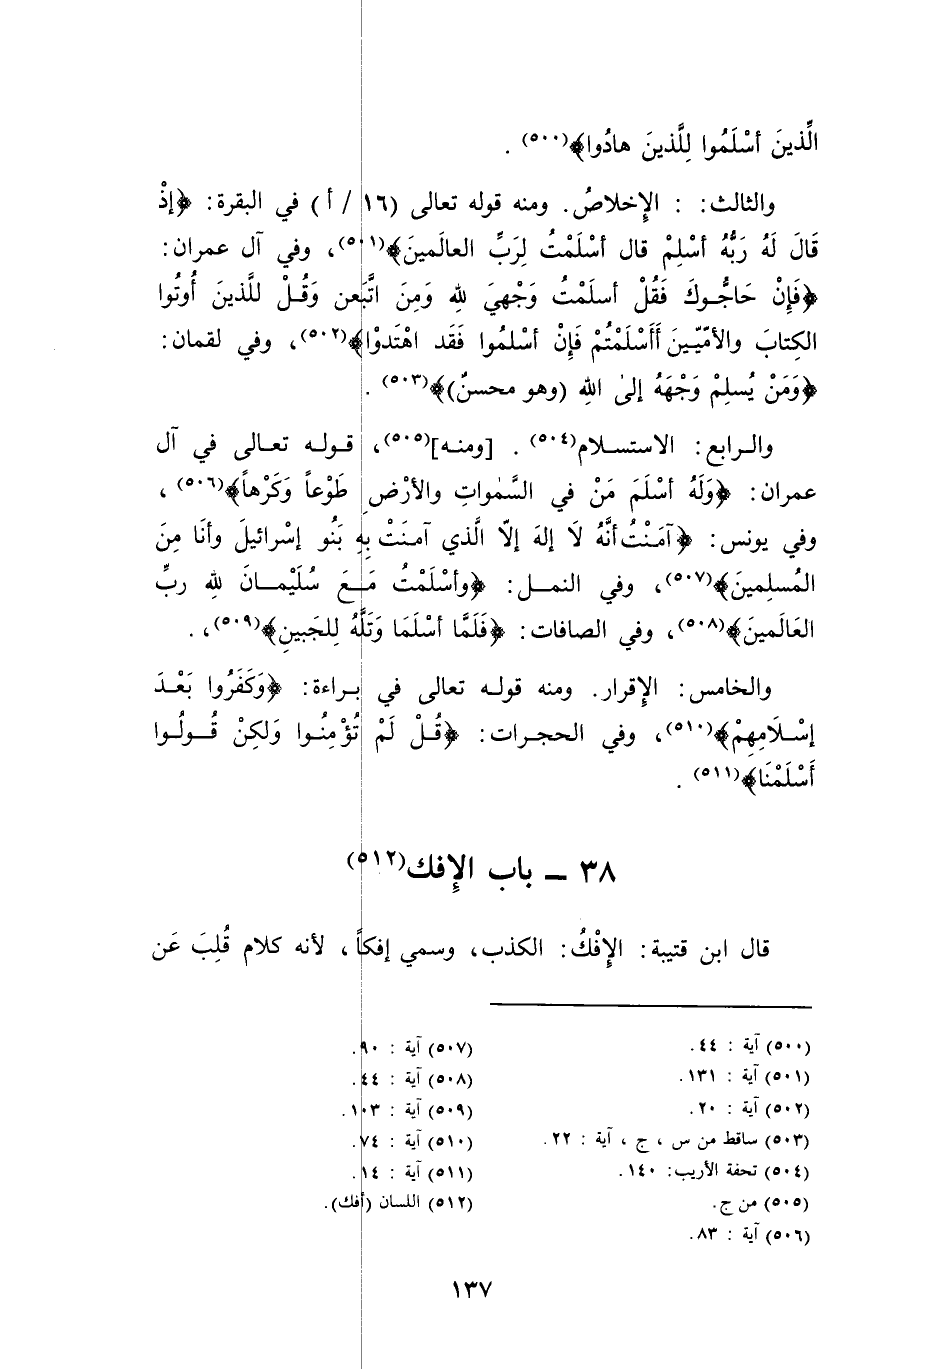 الِّذينَ أسْلَمُوا لِلَّذينَ هادُوا﴾(٥٠٠) .
والثالث: : الإِخلاصُ. ومنه قوله تعالى (١٦ / أ) في البقرة: ﴿إذْ
قَالَ لَهُ رَبُّهُ أسْلِمْ قال أسْلَمْتُ لِرَبِّ العالَمينَ﴾(٥٠١)، وفي آل عمران:
﴿فَإِنْ حَاجُّوكَ فَقُلْ أسلَمْتُ وَجْهيَ للهِ وَمِنَ اتَّبَعن وَقُلْ للَّذينَ أُوتُوا
الكِتابَ والأمّيّينَ أَأَسْلَمْتُمْ فَإِنْ أسْلمُوا فَقَد اهْتَدوْا﴾(٥٠٢)، وفي لقمان:
﴿وَمَنْ يُسلِمْ وَجْهَهُ إلىٰ اللهِ (وهو محسنٌ)﴾(٥٠٣) .
والرابع: الاستسلام(٥٠٤) . [ومنه](٥٠٥)، قوله تعالى في آل
عمران: ﴿وَلَهُ أسْلَمَ مَنْ في السَّمٰواتِ والأرْضِ طَوْعاً وَكَرْهاً﴾(٥٠٦) ،
وفي يونس: ﴿آمَنْتُ أنَّهُ لَا إلهَ إلاّ الَّذي آمنَتْ بِهِ بَنُو إسْرائيلَ وأنَا مِنَ
المُسلِمينَ﴾(٥٠٧)، وفي النمل: ﴿وأسْلَمْتُ مَعَ سُلَيْمانَ للهِ ربِّ
العَالَمينَ﴾(٥٠٨)، وفي الصافات: ﴿فَلَمَّا أسْلَمَا وَتَلَّهُ لِلجَبينِ﴾(٥٠٩)،.
والخامس: الإِقرار. ومنه قوله تعالى في براءة: ﴿وَكَفَرُوا بَعْدَ
إسْلَامِهِمْ﴾(٥١٠)، وفي الحجرات: ﴿قُلْ لَمْ تُؤْمِنُوا وَلكِنْ قُولُوا
أَسْلَمْنَا﴾(٥١١) .
٣٨ ــ باب الإِفك(٥١٢)
قال ابن قتيبة: الإِفْكُ: الكذب، وسمي إفكاً، لأنه كلام قُلِبَ عَن
(٥٠٠) آية : ٤٤.
(٥٠١) آية : ١٣١.
(٥٠٢) آية : ٢٠.
(٥٠٣) ساقط من س ، ج ، آية : ٢٢.
(٥٠٤) تحفة الأريب: ١٤٠.
(٥٠٥) من ج.
(٥٠٦) آية : ٨٣.
(٥٠٧) آية : ٩٠.
(٥٠٨) آية : ٤٤.
(٥٠٩) آية : ١٠٣.
(٥١٠) آية : ٧٤.
(٥١١) آية : ١٤.
(٥١٢) اللسان (أفك).
١٣٧